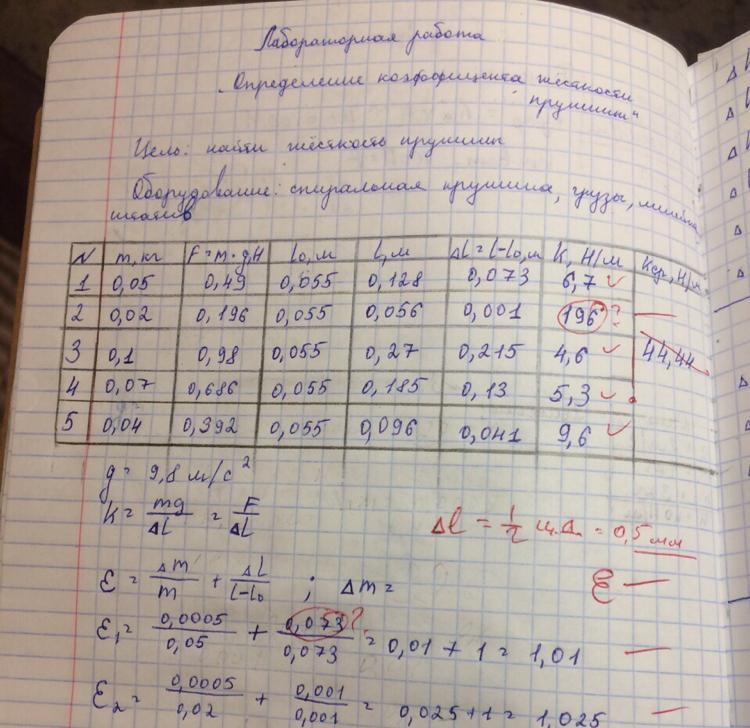 Лабораторная работа
„Определение коэффициента жёсткости
пружины"
Цель: найти жёсткость пружины
Оборудование: спиральная пружина, грузы, линейка,
штатив
N m, кг F=m·g,Н l₀,м l,м Δl=l-l₀,м K, Н/м Kср, Н/м
1 0,05 0,49 0,055 0,128 0,073 6,7 ✓
2 0,02 0,196 0,055 0,056 0,001 196 ? —
3 0,1 0,98 0,055 0,27 0,215 4,6 ✓ 44,44
4 0,07 0,686 0,055 0,185 0,13 5,3 ✓
5 0,04 0,392 0,055 0,096 0,041 9,6 ✓
g = 9,8 м/с²
K = mg/Δl = F/Δl
Δl = 1/2 ц.д. = 0,5 мм
ε = Δm/m + Δl/l-l₀ ; Δm =
ε —
ε₁ = 0,0005/0,05 + 0,073/0,073 ? = 0,01 + 1 = 1,01 —
ε₂ = 0,0005/0,02 + 0,001/0,001 = 0,025 + 1 = 1,025 —